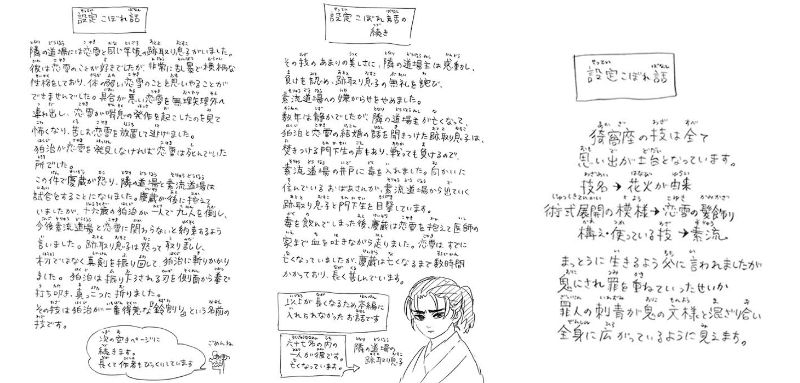 設定こぼれ話
隣の道場には恋雪と同い年位の跡取り息子がいました。
彼は恋雪のことが好きでしたが、非常に乱暴で横柄な
性格をしており、体の弱い恋雪のことを思いやることが
できませんでした。具合が悪い恋雪を無理矢理外へ
連れ出し、恋雪が喘息の発作を起こしたのを見て
怖くなり、苦しむ恋雪を放置して逃げました。
狛治が恋雪を発見しなければ恋雪は死んでいた
所でした。
この件で慶蔵が怒り、隣の道場と素流道場は
試合をすることになりました。慶蔵が後に控えて
いましたが、十六歳の狛治が一人で九人を倒し、
今後素流道場と恋雪に関わらないと約束するよう
言いました。跡取り息子は怒って取り乱し、
木刀ではなく真剣を振り回して狛治に斬りかかり
ました。狛治は振り下ろされる刃を側面から拳で
打ち叩き、真っ二つに折りました。
その技は狛治が一番得意な「鈴割り」という名前の
技です。
次の空きページに
続きます。
長くて作者もびっくりしています
ごめんね
設定こぼれ話の
続き
その技のあまりの美しさに、隣の道場主は感動し、
負けを認め、跡取り息子の無礼を詫び、
素流道場への嫌がらせをやめました。
数年は静かでしたが、隣の道場主が亡くなって、
狛治と恋雪の結婚の話を聞きつけた跡取り息子は、
焚きつける門下生の声もあり、戦っても負けるので、
素流道場の井戸に毒を入れました。向かいに
住んでいるおばさんが、素流道場から出ていく
跡取り息子と門下生を目撃しています。
毒を飲んでしまった後、慶蔵は恋雪を抱えて医師の
家まで血を吐きながら走りました。恋雪はすでに
亡くなっていましたが、慶蔵は亡くなるまで数時間
かかっており、長く苦しんでいます。
以上が長くなるため本編に
入れられなかったお話です
六十七名の内の
一人が彼です。
亡くなっています。
隣の道場の
跡取り息子
設定こぼれ話
猗窩座の技は全て
思い出が土台となっています。
技名→花火が由来
術式展開の模様→恋雪の髪飾り
構え・使っている技→素流
まっとうに生きるよう父に言われましたが
鬼にされ罪を重ねていったせいか
罪人の刺青が鬼の文様と混ざり合い
全身に広がっているように見えます。